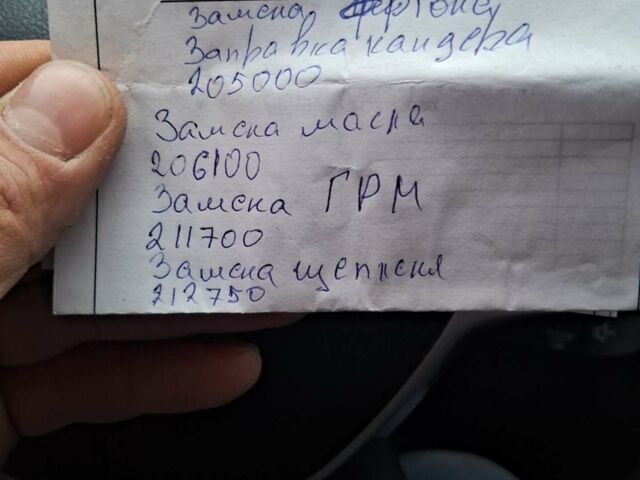 Замена фреона
Заправка кандера
205000
Замена масла
206100
Замена ГРМ
211700
Замена щепления
212750